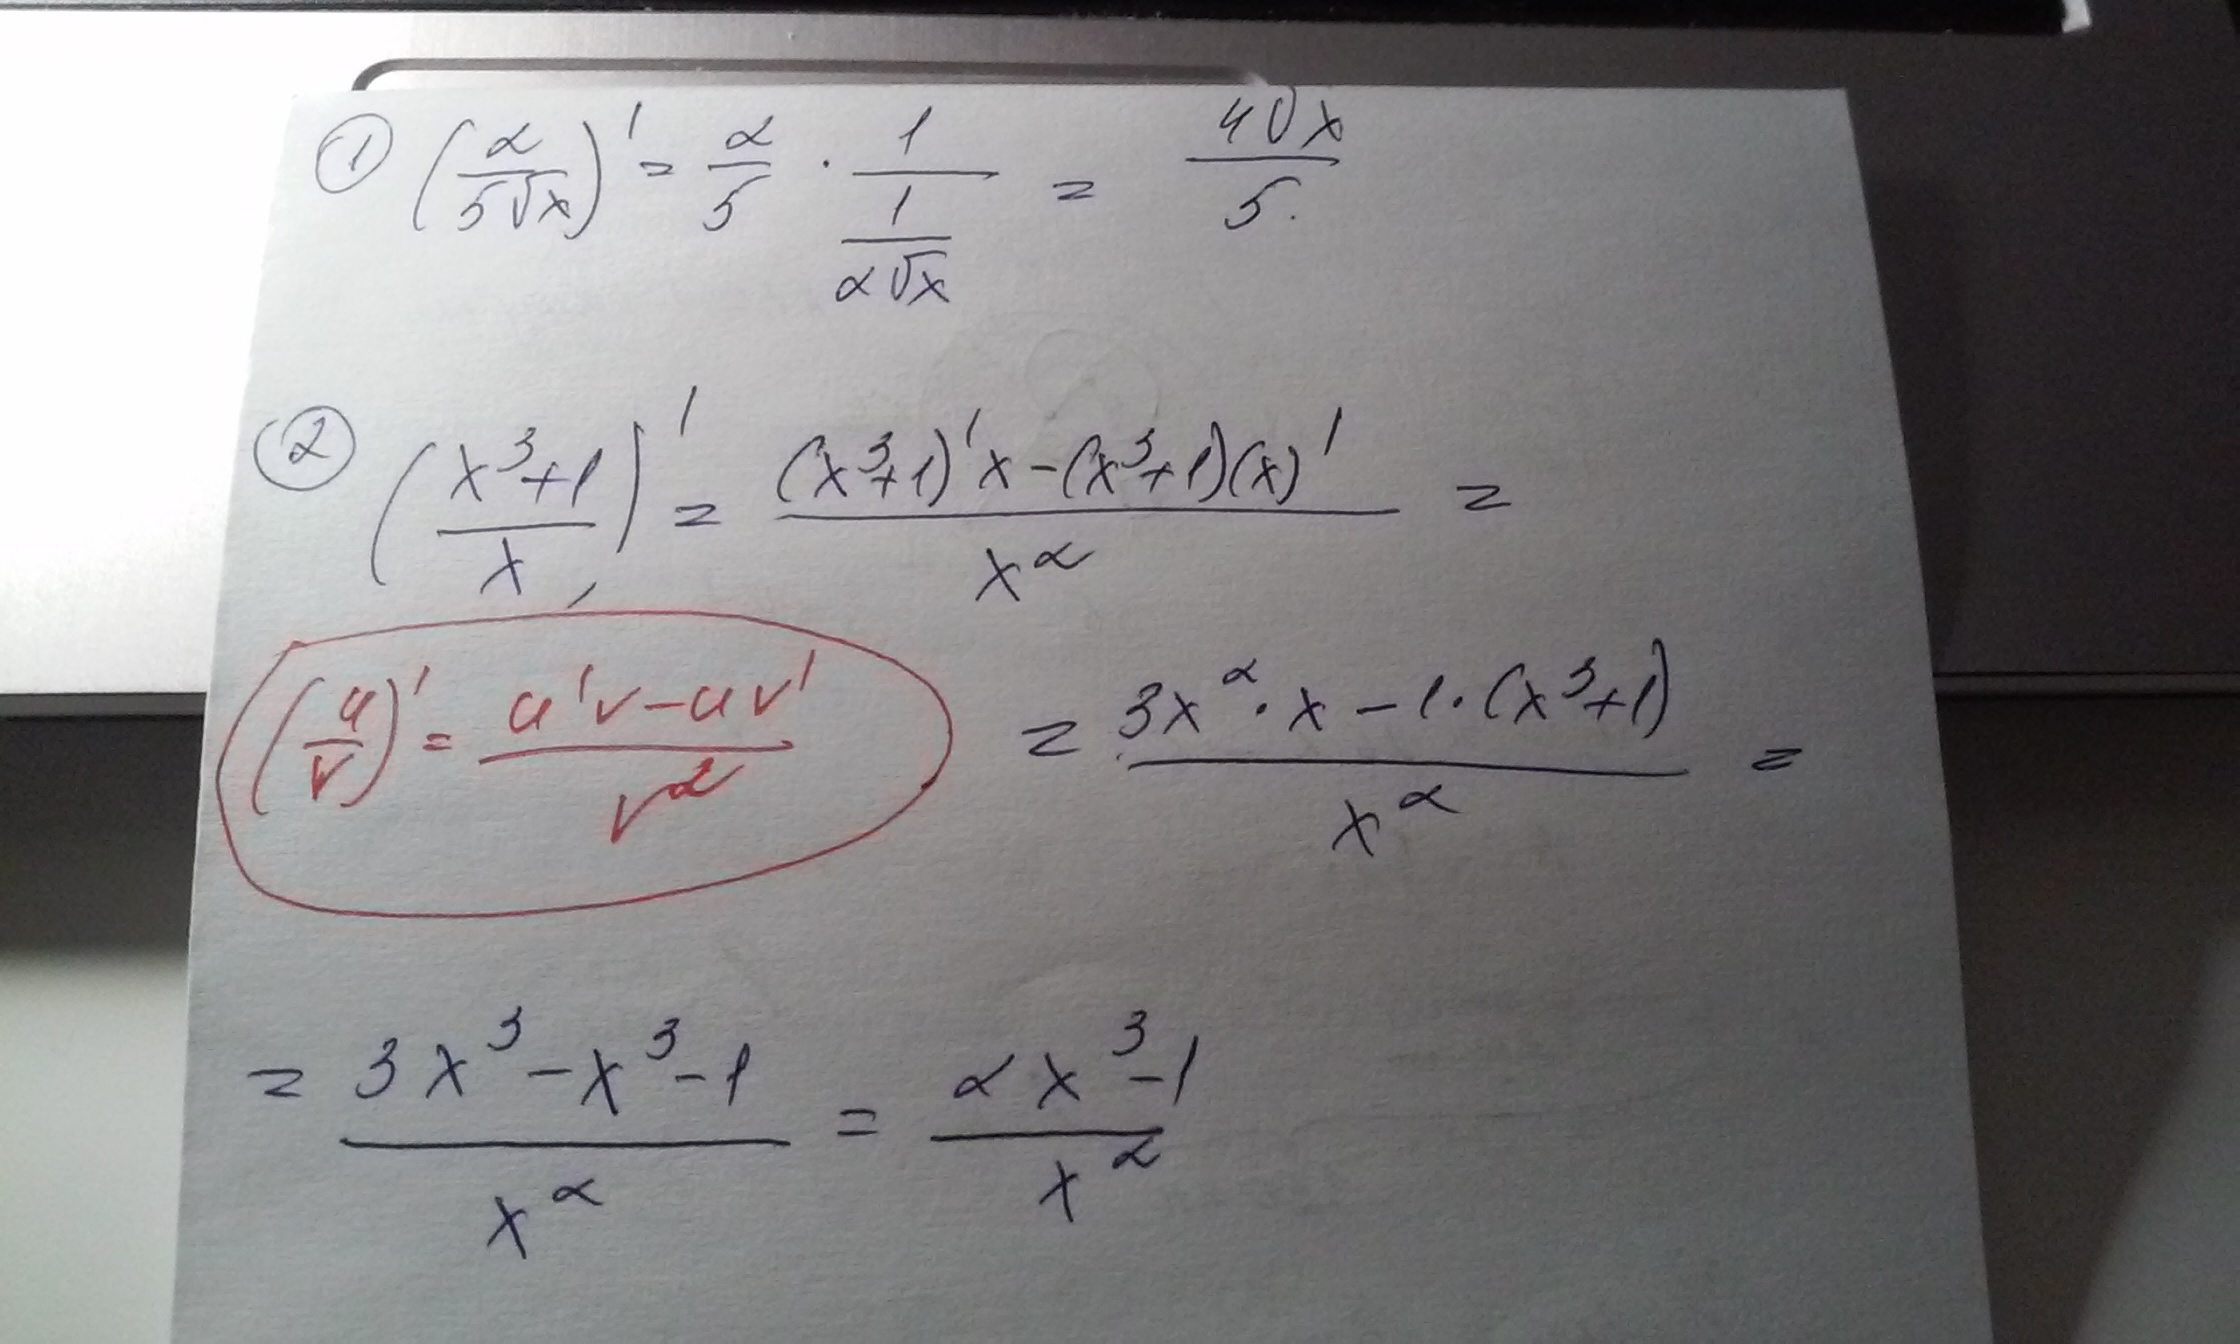 ① (2/(5√x))' = 2/5 · 1/(1/(2√x)) = 4√x/5.
② ((x³+1)/x)' = ((x³+1)'x-(x³+1)(x)')/x² =
(u/v)' = (u'v-uv')/v²
= (3x²·x-1·(x³+1))/x² =
= (3x³-x³-1)/x² = (2x³-1)/x²